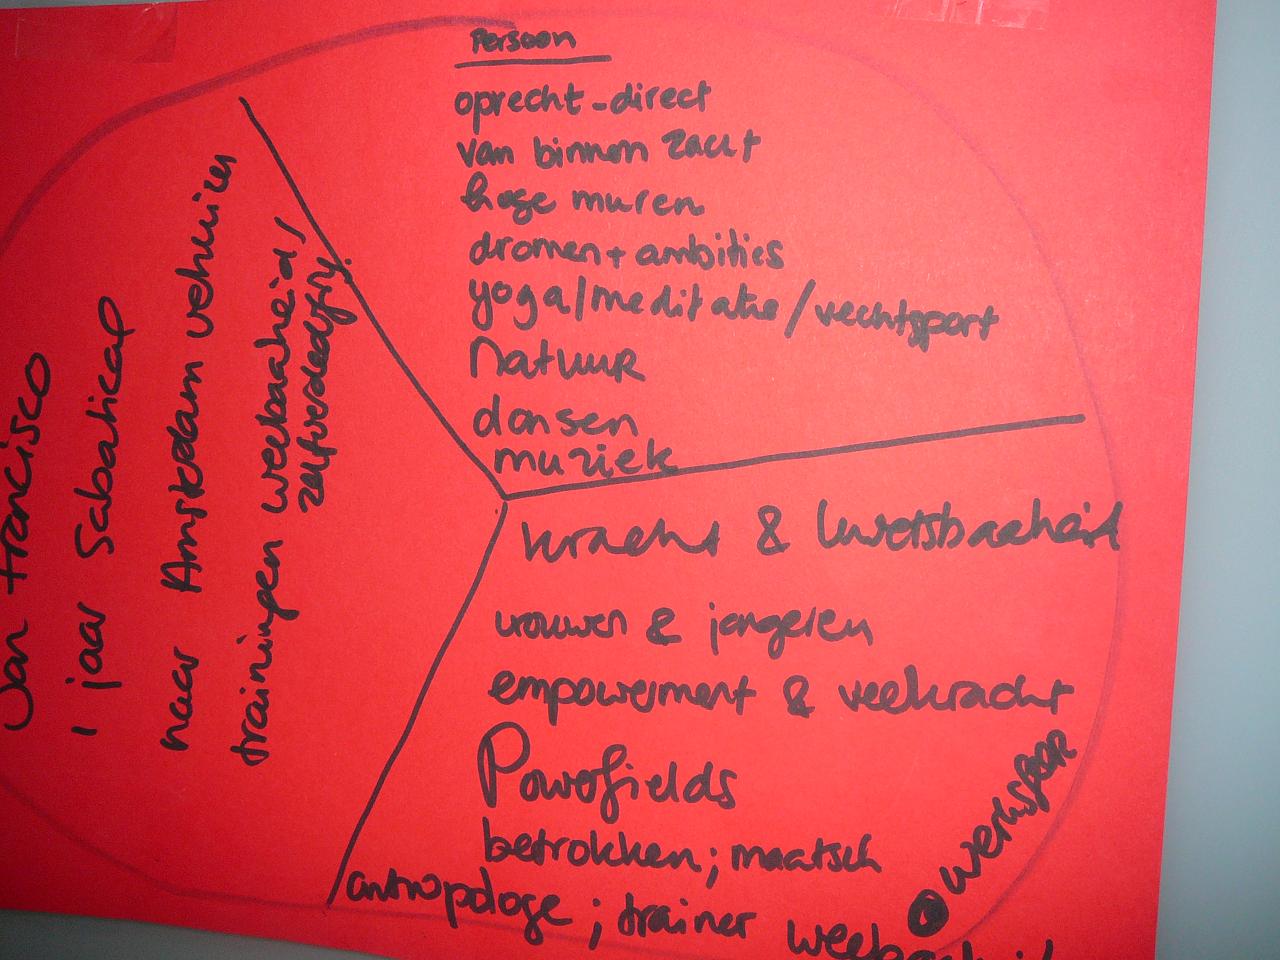 Persoon
oprecht-direct
van binnen zacht
hoge muren
dromen + ambities
yoga/meditatie/vechtsport
Natuur
dansen
muziek
kracht & kwetsbaarheid
vrouwen & jongeren
empowerment & veerkracht
Powerfields
betrokken; maatsch
antropologe; trainer weerbaarheid
werksfeer
San Francisco
1 jaar Sabatical
naar Amsterdam verhuizen
trainingen weerbaarheid/
zelfverdedig.